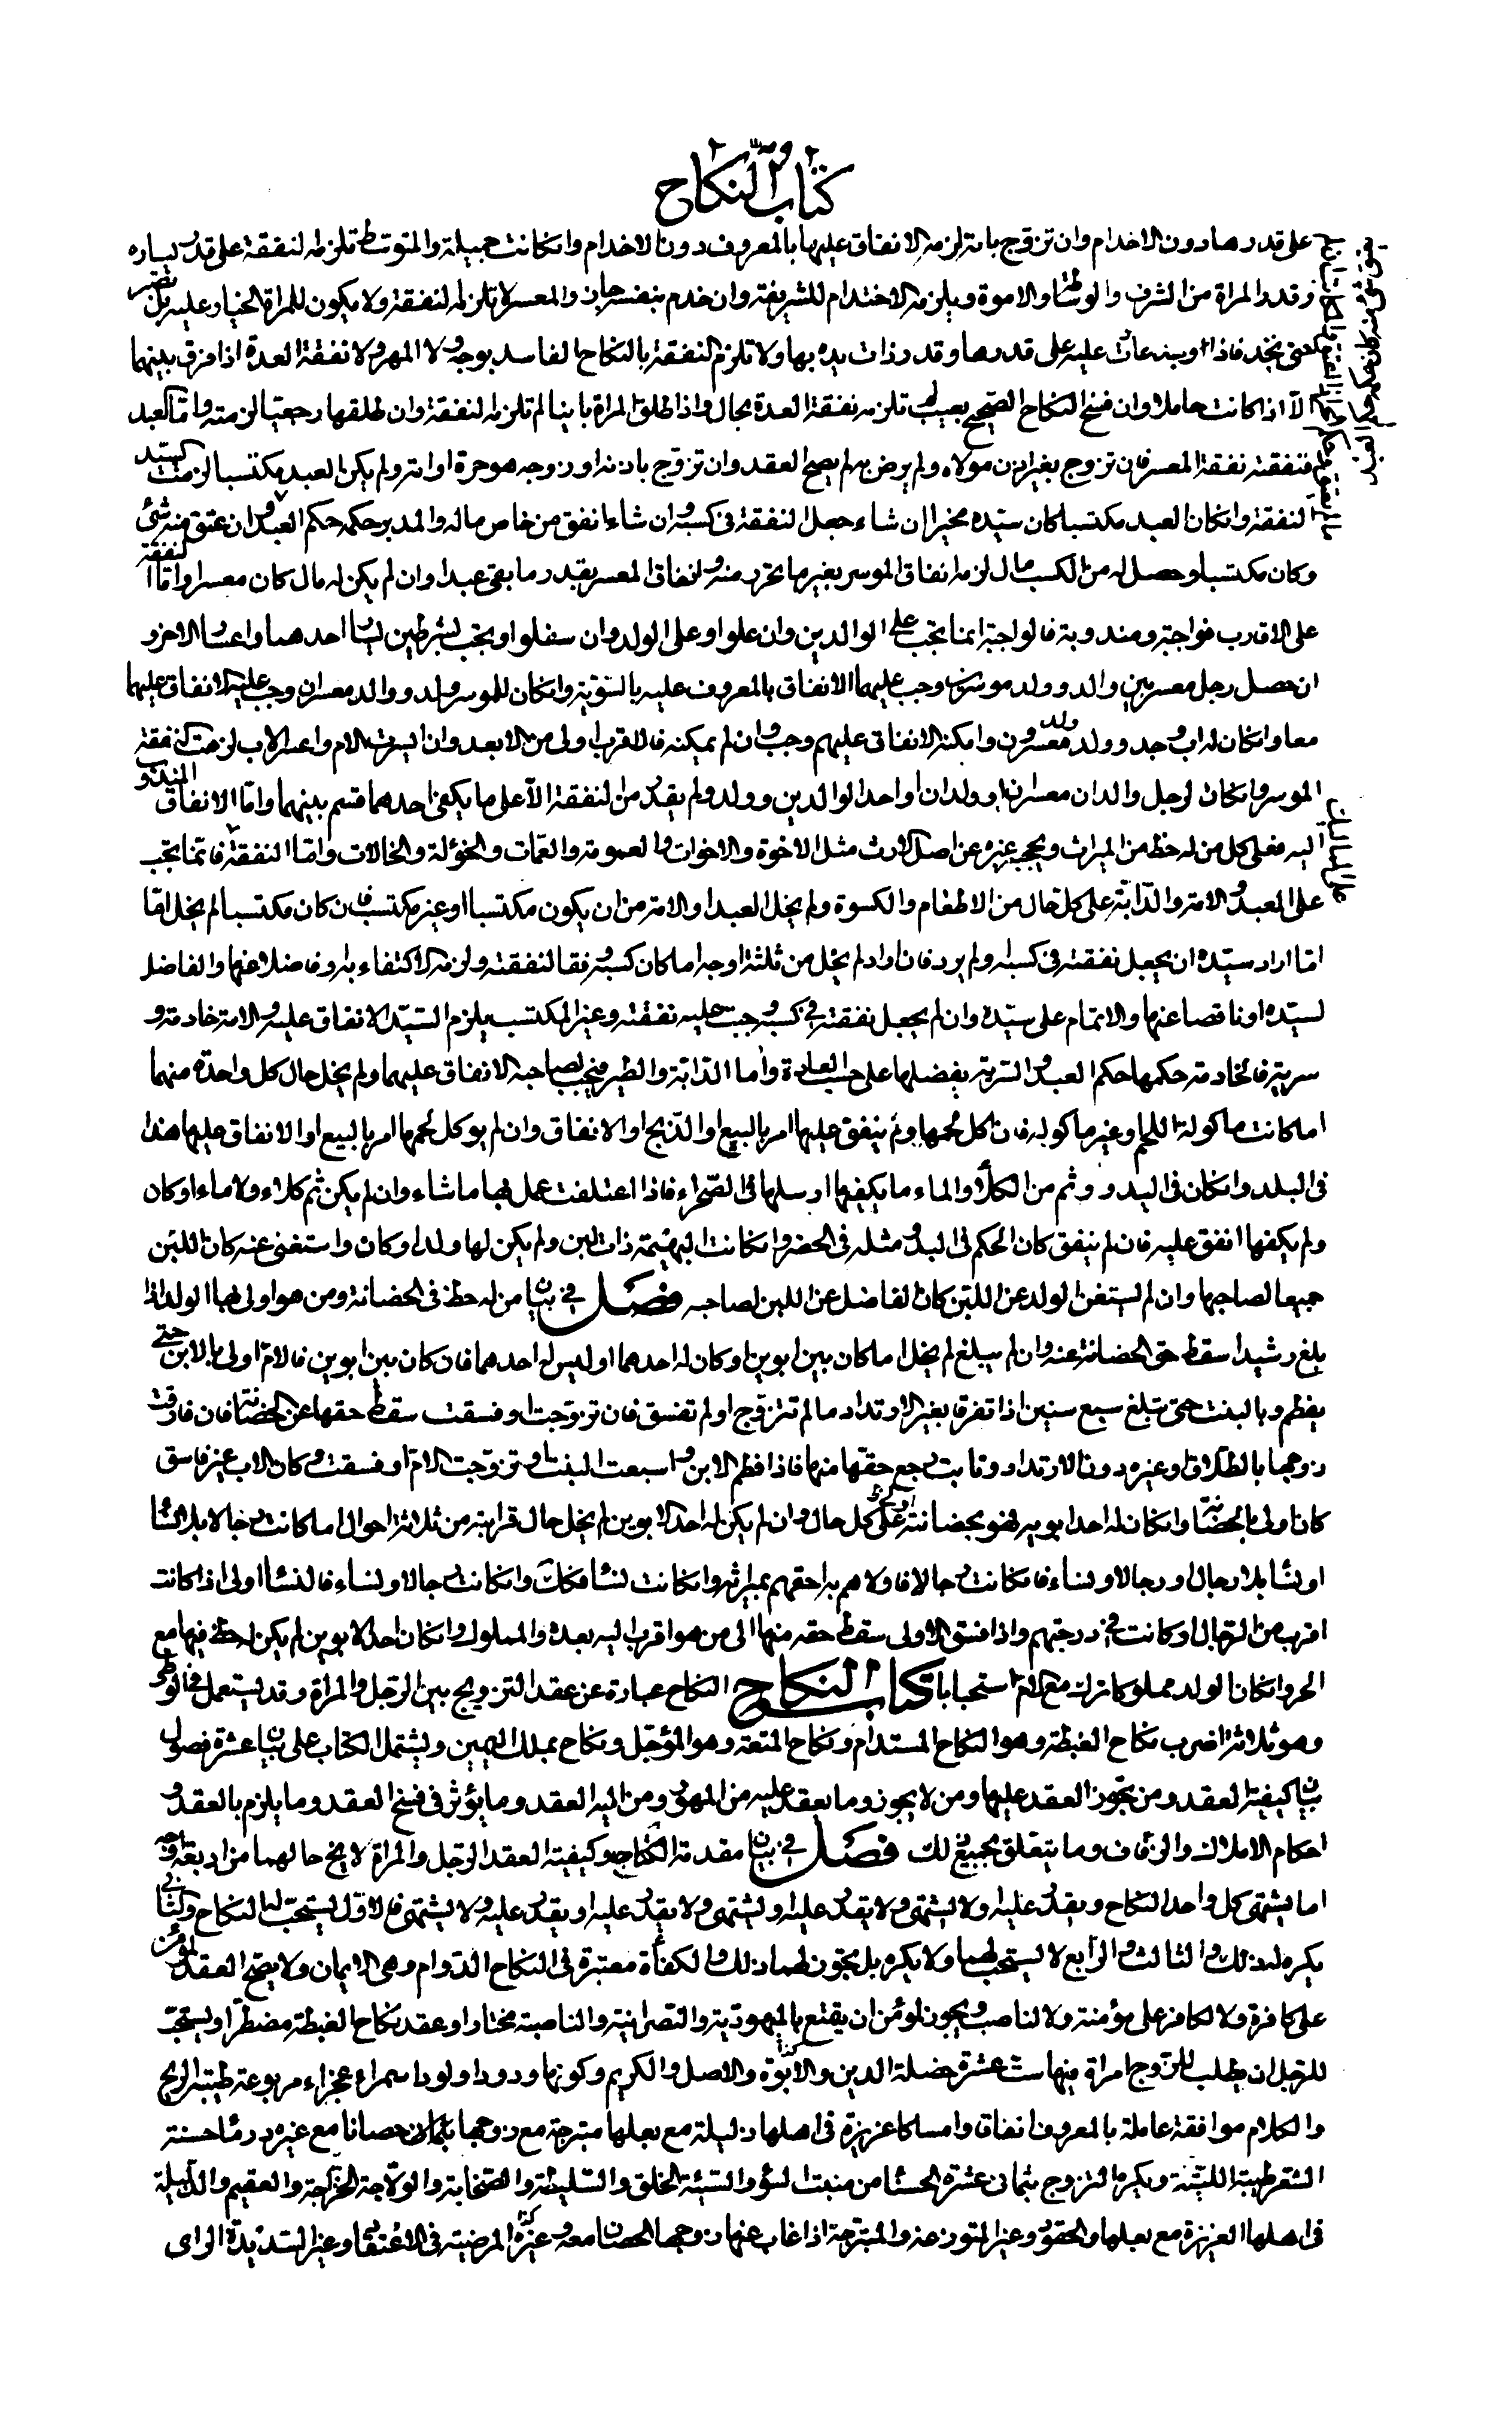 كتاب النكاح
على قدرها دون الاخدام وان تزوج بامة لزمه الانفاق عليها بالمعروف دون الاخدام وان كانت جميلة والمتوسط تلزمه النفقة على قدر يساره
وقدر المراة من الشرف والوساطة والاموة ويلزمه الاختدام للشريفة وان خدم بنفسه جاز والمعسر لا تلزمه النفقة ولا يكون للمراة الخيار وعليه ان تصبر
حتى يجد فاذا وسع عليه على قدرها وقدر ذات يده بها ولا تلزم النفقة بالنكاح الفاسد بوجه ولا المهر ولا نفقة العدة اذا فرق بينهما
الا اذا كانت حاملا وان فسخ النكاح الصحيح بعيب لم تلزمه نفقة العدة بحال واذا طلق المراة باينا لم تلزمه النفقة وان طلقها رجعيا لزمته واما العبد
فنفقته نفقة المعسر فان تزوج بغير اذن مولاه ولم يرض به لم يصح العقد وان تزوج باذنه او زوجه هو حرة او امة ولم يكن العبد مكتسبا لزمت سيده
النفقة وان كان العبد مكتسبا كان سيده مخيرا ان شاء جعل النفقة في كسبه وان شاء انفق من خاص ماله والمدبر حكمه حكم العبد وان عتق منه شئ
وكان مكتسبا وحصل له من الكسب مال لزمه انفاق الموسر بقدر ما تحرر منه وانفاق المعسر بقدر ما بقي عبدا وان لم يكن له مال كان معسرا واما النفقة
على الاقارب فواجبة ومندوبة فالواجبة انما تجب على الوالدين وان علوا وعلى الولد وان سفلوا ويجب بشرطين يسار احدهما واعسار الاخر و
ان حصل رجل معسر بين والد وولد موسرين وجب عليهما الانفاق بالمعروف عليه بالسوية وان كان للموسر ولد ووالد معسران وجب عليه الانفاق عليهما
معا وان كان له اب وجد وولد وولد ولد معسرون وامكنه الانفاق عليهم وجب وان لم يمكنه فالاقرب اولى من الابعد وان ايسرت الام واعسر الاب لزمت النفقة
الموسر وان كان لرجل والدان معسران او ولدان او احد الوالدين وولد ولم يقدر من النفقة الا على ما يكفي احدهما قسم بينهما واما الانفاق المندوب
اليه فعلى كل من له حظ من الميراث ويحجبه غيره عن اصل الارث مثل الاخوة والاخوات والعمومة والعمات والخؤلة والخالات واما النفقة فانما تجب
على العبد والامة والدابة على كل حال من الاطعام والكسوة ولم يخل العبد او الامة من ان يكون مكتسبا او غير مكتسب فان كان مكتسبا لم يخل اما
اما اراد سيده ان يجعل نفقته في كسبه او لم يرد فان اراد لم يخل من ثلثة اوجه اما كان كسبه وفقا لنفقته ولزمه الاكتفاء به او فاضلا عنها والفاضل
لسيده او ناقصا عنها والاتمام على سيده وان لم يجعل نفقته في كسبه وجبت عليه نفقته وغير المكتسب يلزم السيد الانفاق عليه والامة خادمة و
سرية فالخادمة حكمها حكم العبد والسرية يفضلها على حسب العادة واما الدابة والطير فيجب لصاحبه الانفاق عليهما ولم يخل حال كل واحدة منهما
اما كانت ماكولة اللحم او غير ماكولة فان اكل لحمها ولم ينفق عليها امر بالبيع او الذبح او الانفاق وان لم يوكل لحمها امر بالبيع او الانفاق عليها هذا
في البلد وان كان في البدو وثم من الكلأ والماء ما يكفيها ارسلها في الصحراء فاذا اعتلفت عمل بها ما شاء وان لم يكن ثم كلاء ولا ماء او كان
ولم يكفها انفق عليه فان لم ينفق كان الحكم في البدو مثله في الحضر وان كانت البهيمة ذات لبن ولم يكن لها ولد او كان واستغنى عنه كان اللبن
جميعا لصاحبها وان لم يستغن الولد عن اللبن كان الفاضل عن اللبن لصاحبه فصل في بيان من له حظ في الحضانة ومن هو اولى بها الولد اذا
بلغ رشيدا سقط حق الحضانة عنه وان لم يبلغ لم يخل اما كان بين ابوين او كان له احدهما او ليس له احدهما فان كان بين ابوين فالام اولى بالابن حتى
يفطم وبالبنت حتى تبلغ سبع سنين اذا تفرقا بغير الارتداد ما لم تتزوج او لم تفسق فان تزوجت او فسقت سقط حقها عن الحضانة فان فارقت
زوجها بالطلاق او غيره دون الارتداد وتابت رجع حقها منها فاذا فطم الابن واسبعت البنت او تزوجت الام او فسقت وكان الاب غير فاسق
كان اولى بالحضانة وان كان له احد ابويه فهو بحضانته اولى على كل حال وان لم يكن له احد الابوين لم يخل حال قرابته من ثلاثة احوال اما كانت رجالا بلا نساء
او نساء بلا رجال او رجالا ونساء فان كانت رجالا فاولاهم به احقهم بميراثه وان كانت نساء فكذلك وان كانت رجالا ونساء فالنساء اولى اذا كانت
اقرب من الرجال او كانت في درجتهم واذا فسق الاولى سقط حقه منها الى من هو اقرب اليه بعده والمملوك وان كان احد الابوين لم يكن له حظ فيها مع
الحر وان كان الولد مملوكا ترك مع الام استحبابا كتاب النكاح النكاح عبارة عن عقد التزويج بين الرجل والمراة وقد يستعمل في الوطى
وهو ثلاثة اضرب نكاح الغبطة وهو النكاح المستدام ونكاح المتعة وهو المؤجل ونكاح بملك اليمين ويشتمل الكتاب على بيان عشرة فصول
بيان كيفية العقد ومن يجوز العقد عليها ومن لا يجوز وما يعقد عليه من المهور ومن اليه العقد وما يؤثر في فسخ العقد وما يلزم بالعقد و
احكام الاملاك والزفاف وما يتعلق بجميع ذلك فصل في بيان مقدمة النكاح وكيفية العقد الرجل والمراة لا يخ حالهما من اربعة اوجه
اما يشتهى كل واحد النكاح ويقدر عليه او لا يشتهى ولا يقدر عليه او يشتهى ولا يقدر عليه او يقدر عليه ولا يشتهى فالاول يستحب له النكاح والثاني
يكره له ذلك والثالث والرابع لا يستحب لهما ولا يكره بل يجوز لهما ذلك والكفاءة معتبرة في النكاح الدوام وهي الايمان ولا يصح العقد لمؤمن
على كافرة ولا لكافر على مؤمنة ولا لناصب ويجوز لمؤمن ان يتمتع باليهودية والنصرانية والناصبة مختارا وعقد نكاح الغبطة مضطرا ويستحب
للرجل ان يطلب للتزوج امراة فيها ست عشرة خصلة الدين والابوة والاصل والكريم وكونها ودودا ولودا سمراء عجزاء مربوعة طيبة الريح
والكلام موافقة عاملة بالمعروف انفاقا وامساكا عزيزة في اهلها ذليلة مع بعلها متبرجة مع زوجها حصانا مع غيره درماء حسنة
الشعر طيبة الليتة ويكره التزوج بثماني عشرة الحسناء من منبت السؤ والسيئة الخلق والسليطة والصخابة والولاجة الخراجة والعقيم والذليلة
في اهلها العزيزة مع بعلها والحقود وغير المتورعة والمتبرجة اذا غاب عنها زوجها الحصان معه وغير المرضية في الاعتقاد وغير السديدة الراى